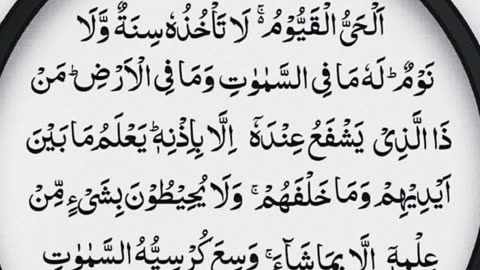 اَلْحَیُّ الْقَیُّوْمُ ۚ لَا تَاْخُذُهٗ سِنَةٌ وَّلَا
نَوْمٌ ؕ لَهٗ مَا فِی السَّمٰوٰتِ وَمَا فِی الْاَرْضِ ؕ مَنْ
ذَا الَّذِیْ یَشْفَعُ عِنْدَهٗۤ اِلَّا بِاِذْنِهٖ ؕ یَعْلَمُ مَا بَیْنَ
اَیْدِیْهِمْ وَمَا خَلْفَهُمْ ۚ وَلَا یُحِیْطُوْنَ بِشَیْءٍ مِّنْ
عِلْمِهٖۤ اِلَّا بِمَا شَآءَ ۚ وَسِعَ كُرْسِیُّهُ السَّمٰوٰتِ